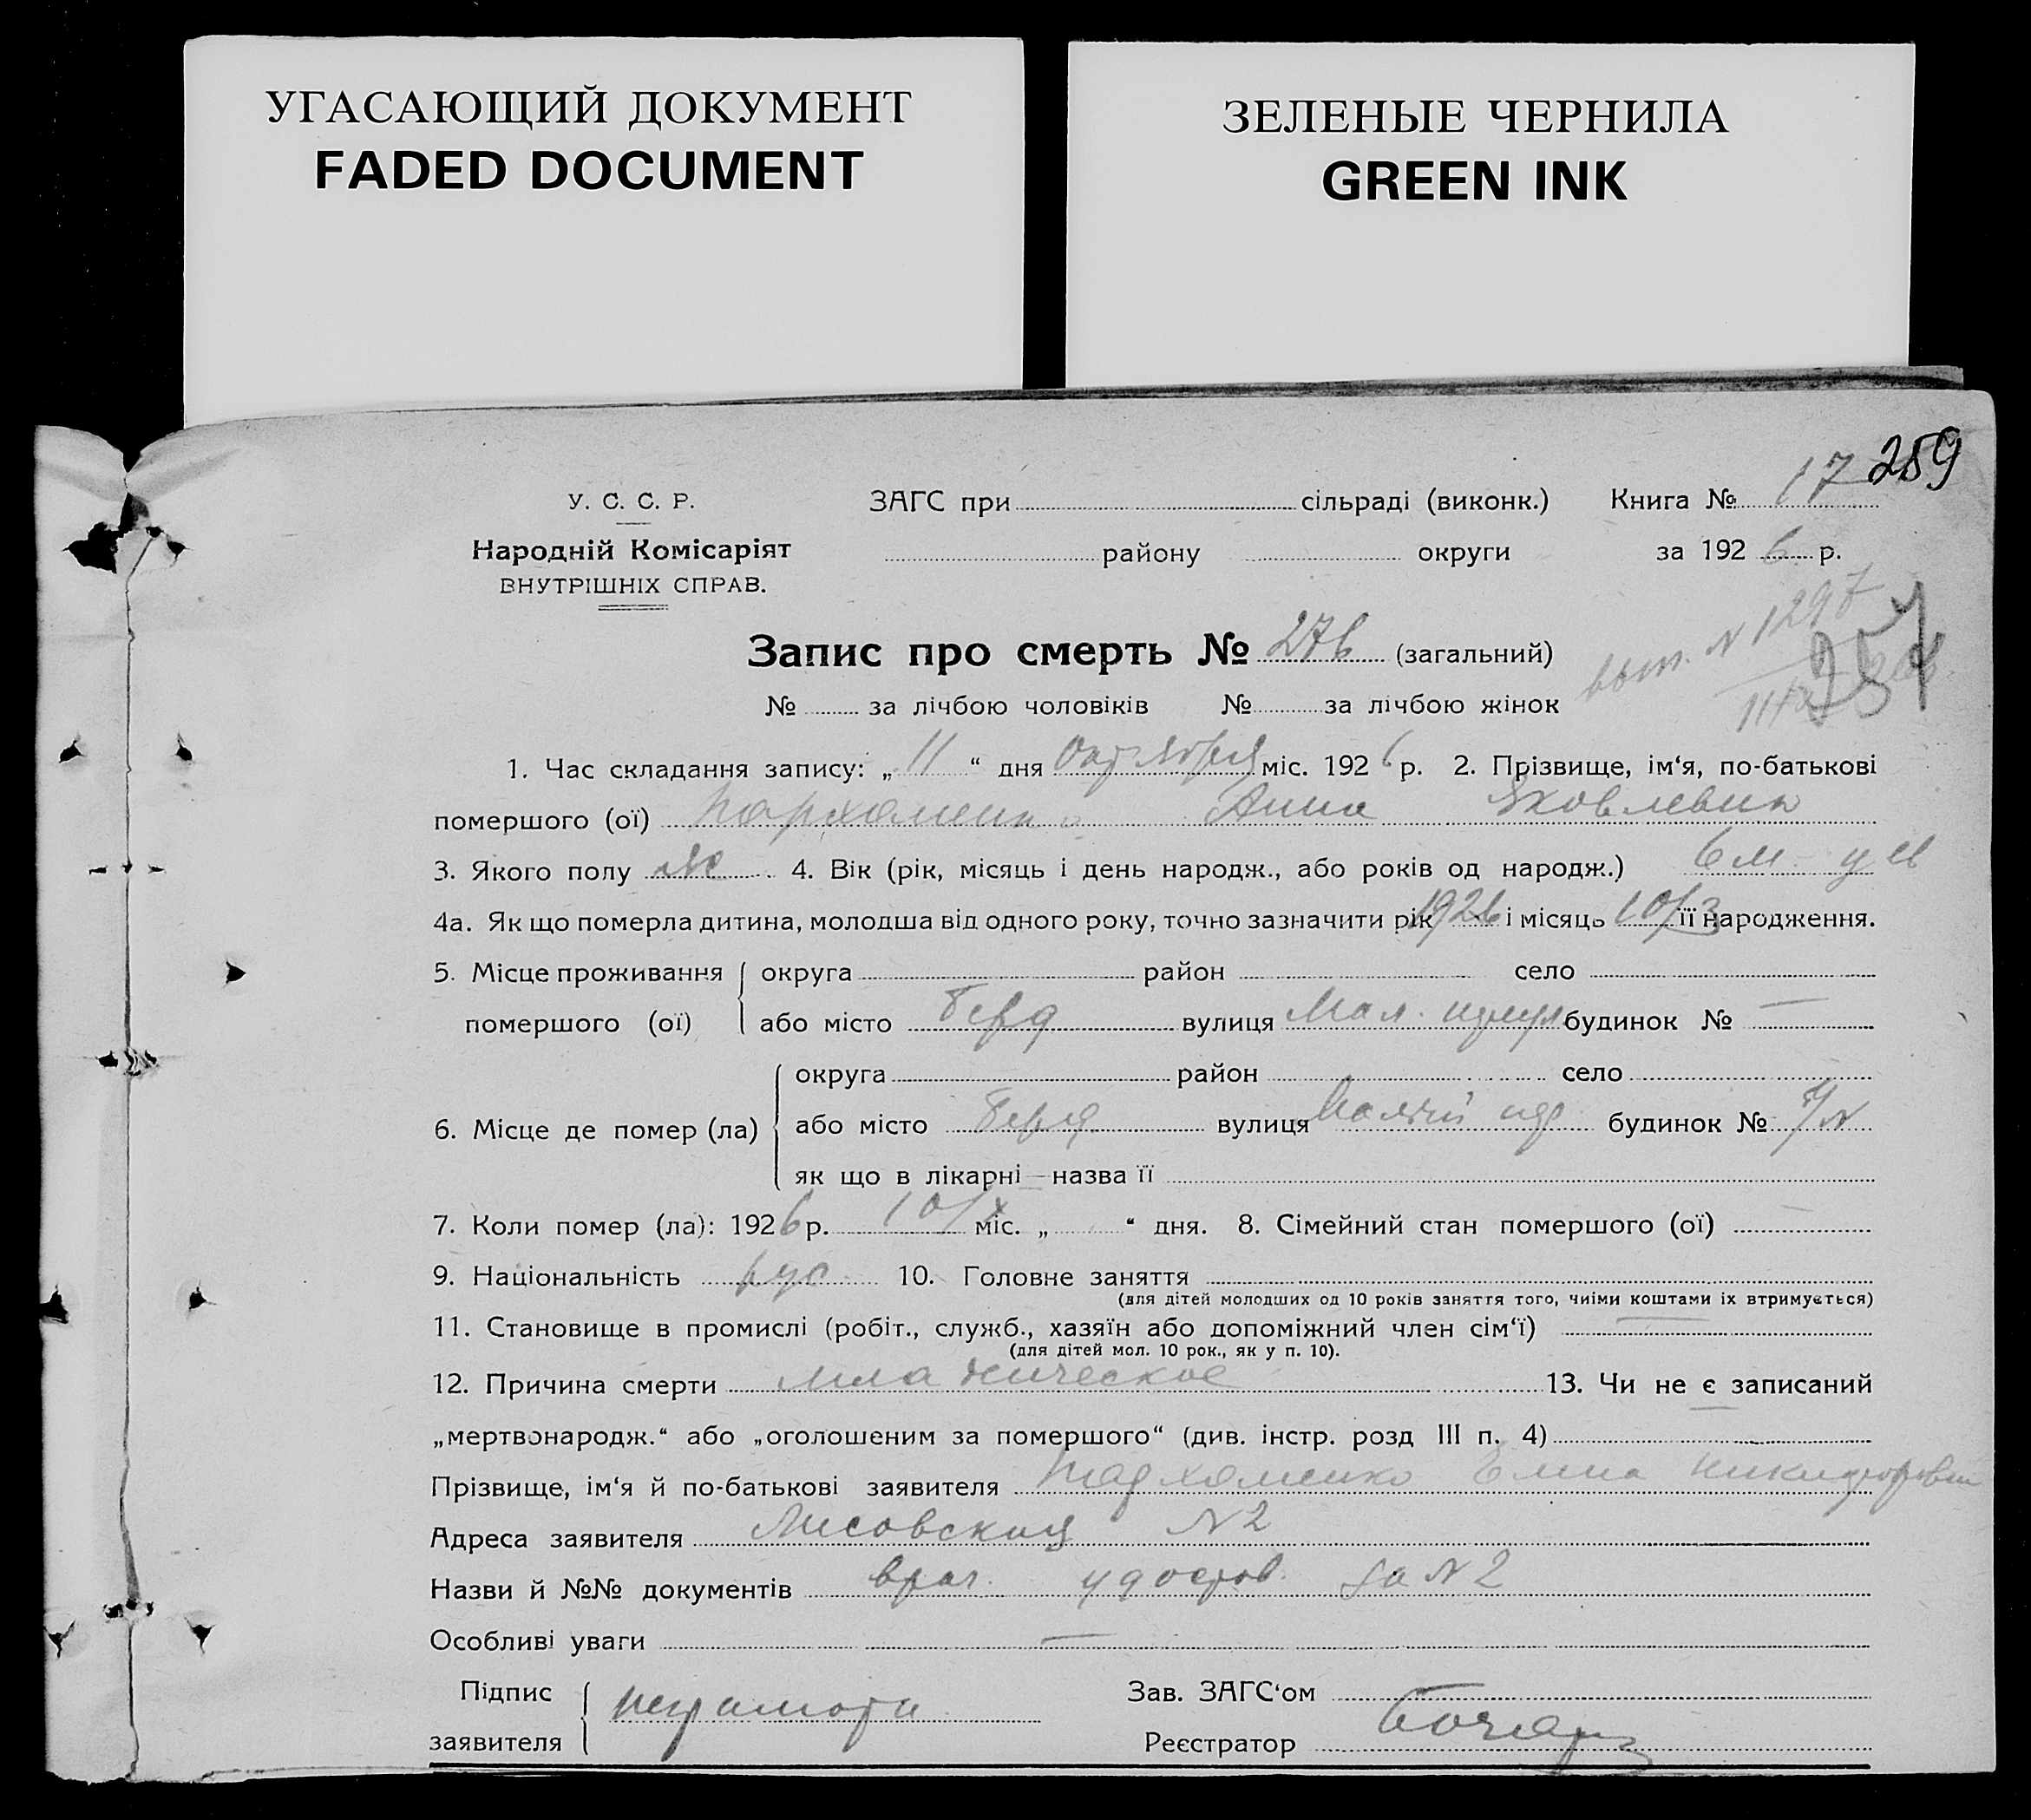 УГАСАЮЩИЙ ДОКУМЕНТ
FADED DOCUMENT
ЗЕЛЕНЫЕ ЧЕРНИЛА
GREEN INK
259
У. С. С. Р. ЗАГС при сільраді (виконк.) Книга № 17
Народній Комісаріят району округи за 1926 р.
ВНУТРІШНІХ СПРАВ.
Запис про смерть № 276 (загальний)
№ за лічбою чоловіків № за лічбою жінок
257
1. Час складання запису: „ 11 “ дня Октября міс. 1926 р. 2. Прізвище, ім‘я, по-батькові
помершого (ої) Пархоменко Анна Яковлевна
3. Якого полу ж 4. Вік (рік, місяць і день народж., або років од народж.) 6 м
4а. Як що померла дитина, молодша від одного року, точно зазначити рік 1926 і місяць 10/3 її народження.
5. Місце проживання округа район село
помершого (ої) або місто Берд вулиця Мал. будинок № —
округа район село
6. Місце де помер (ла) або місто Берд вулиця будинок №
як що в лікарні—назва її
7. Коли помер (ла): 1926 р. 10/X міс. „ “ дня. 8. Сімейний стан помершого (ої) —
9. Національність рус 10. Головне заняття
(для дітей молодших од 10 років заняття того, чиїми коштами їх втримується)
11. Становище в промислі (робіт., служб., хазяїн або допоміжний член сім‘ї) —
(для дітей мол. 10 рок., як у п. 10).
12. Причина смерти младенческое 13. Чи не є записаний
„мертвонародж.“ або „оголошеним за помершого“ (див. інстр. розд III п. 4)
Прізвище, ім‘я й по-батькові заявителя Пархоменко Никифоровна
Адреса заявителя Лисовская №2
Назви й №№ документів врач. удостов. за №2
Особливі уваги —
Підпис неграмота Зав. ЗАГС‘ом
заявителя Реєстратор